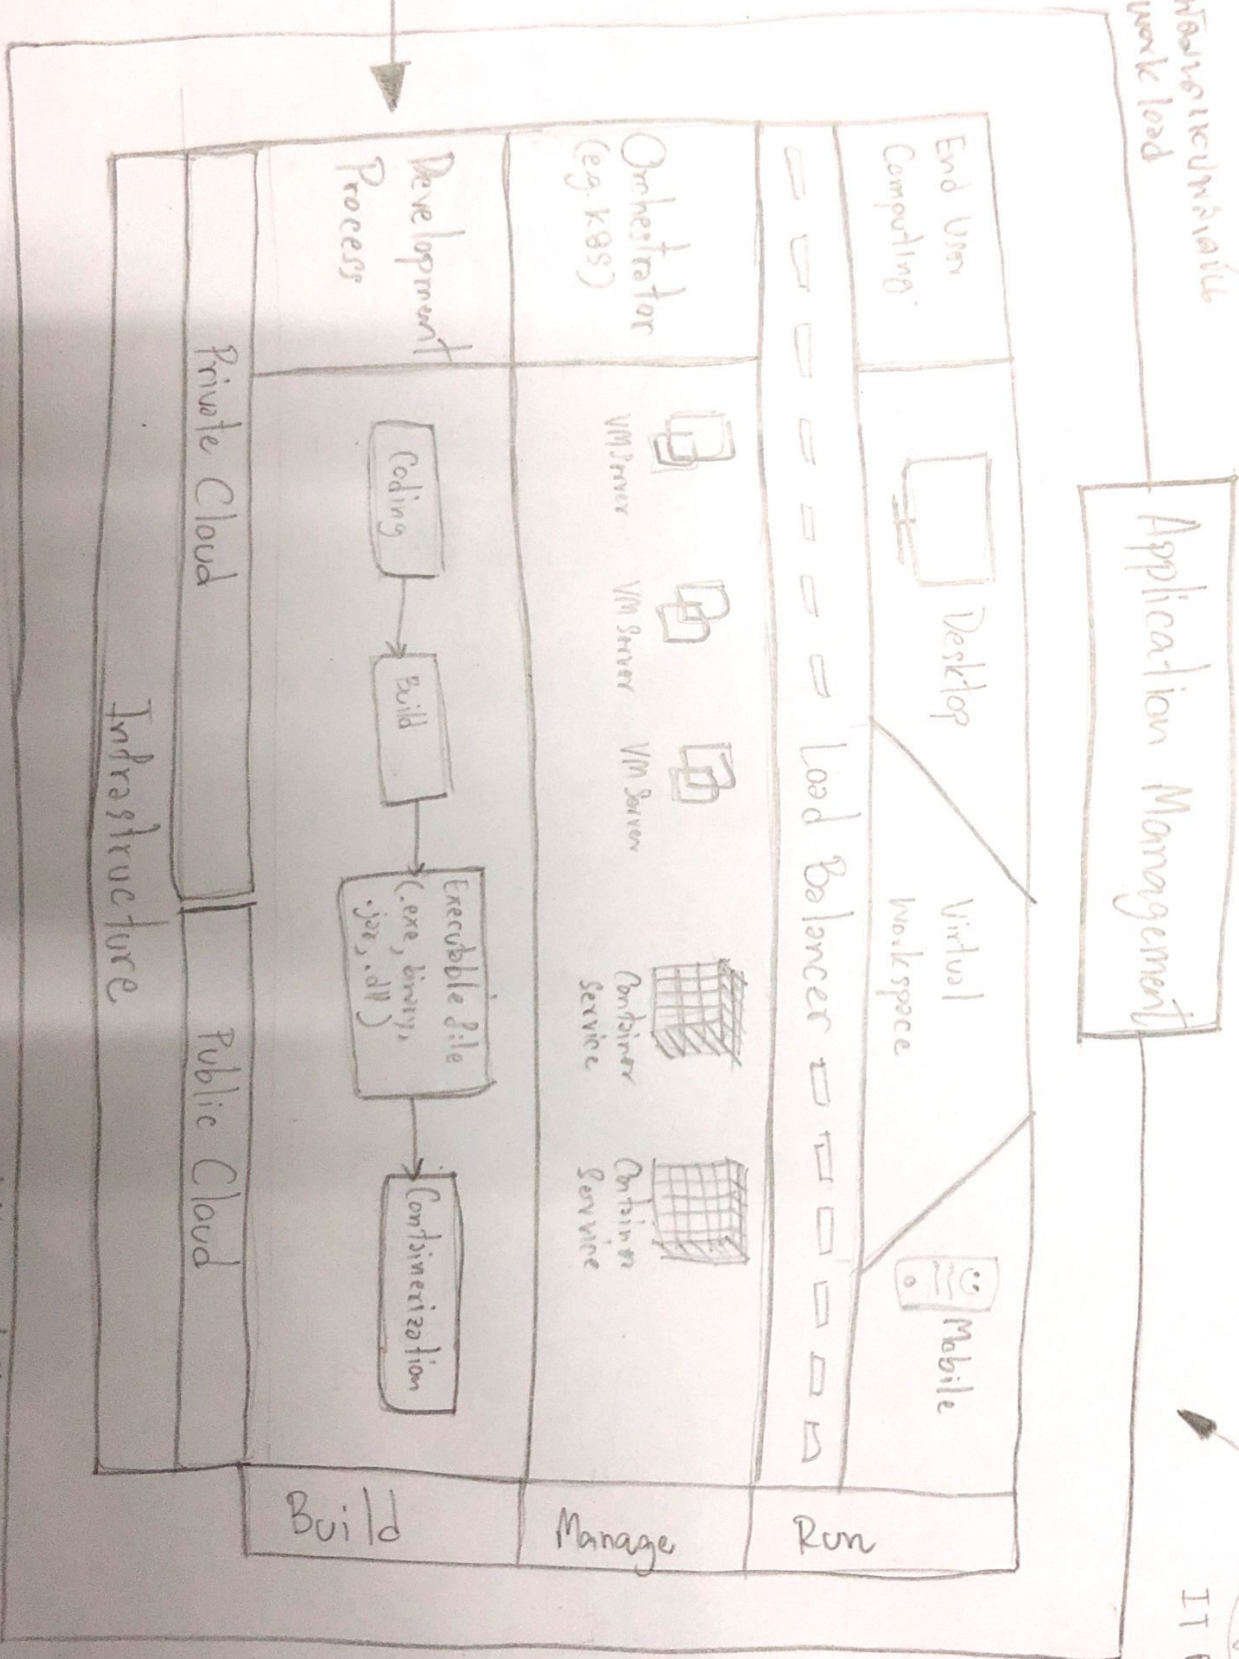 work load
Application Management
End User
Computing
Desktop
Virtual
workspace
Mobile
Run
Load Balancer
Orchestrator
(e.g. K8S)
VM Server
VM Server
VM Server
Container
Service
Container
Service
Manage
Development
Process
Coding
Build
Executable file
(.exe, binary,
.jar, .dll)
Containerization
Build
Private Cloud
Public Cloud
Infrastructure
IT